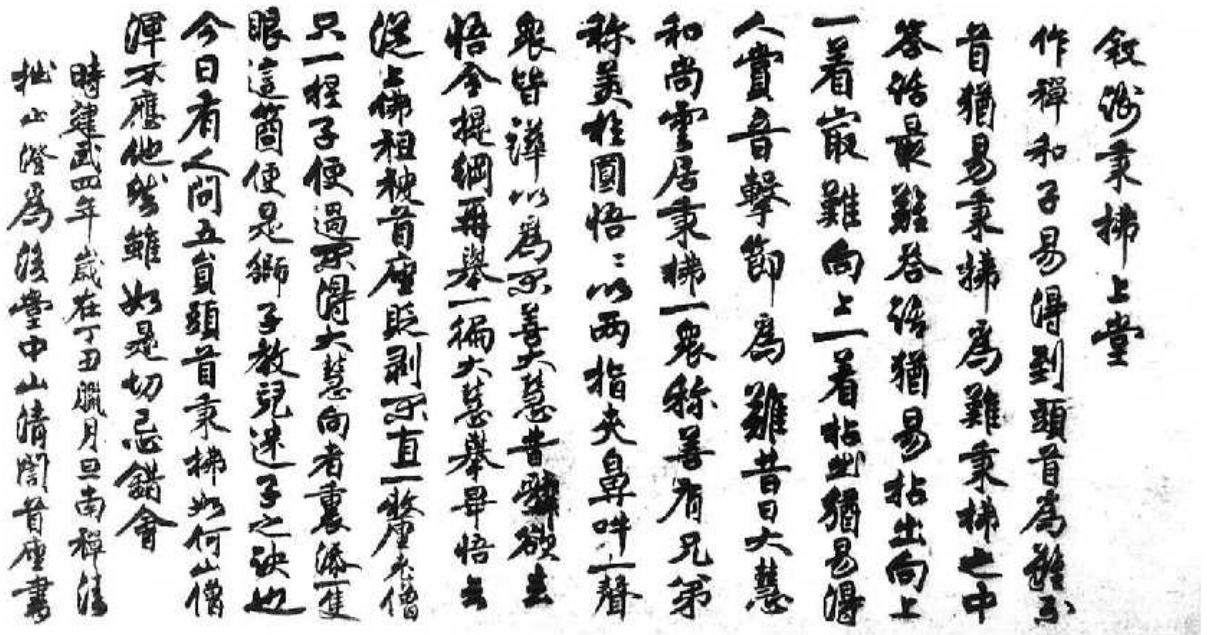 敘謝秉拂上堂
作禪和子易得到頭首為難出
首猶易秉拂為難秉拂之中
答話最難答話猶易拈出向上
一着寂難向上一着拈出猶易得
人賞音擊節為難昔日大慧
和尚雲居秉拂一衆称善有兄弟
称美於圓悟〻以兩指夾鼻吽一聲
衆皆譁以為不善大慧昔辭欲去
悟令提綱再舉一徧大慧舉畢悟云
從上佛祖被首座貶剥不直一𨤲老僧
只一捏子便過不得大慧向者裏添一隻
眼這箇便是獅子教兒迷子之訣也
今日有人問五員頭首秉拂如何山僧
渾不應他然雖如是切忌錯會
時建武四年歲在丁丑臘月旦南禪法
拙山澄為後堂中山清誾首座書